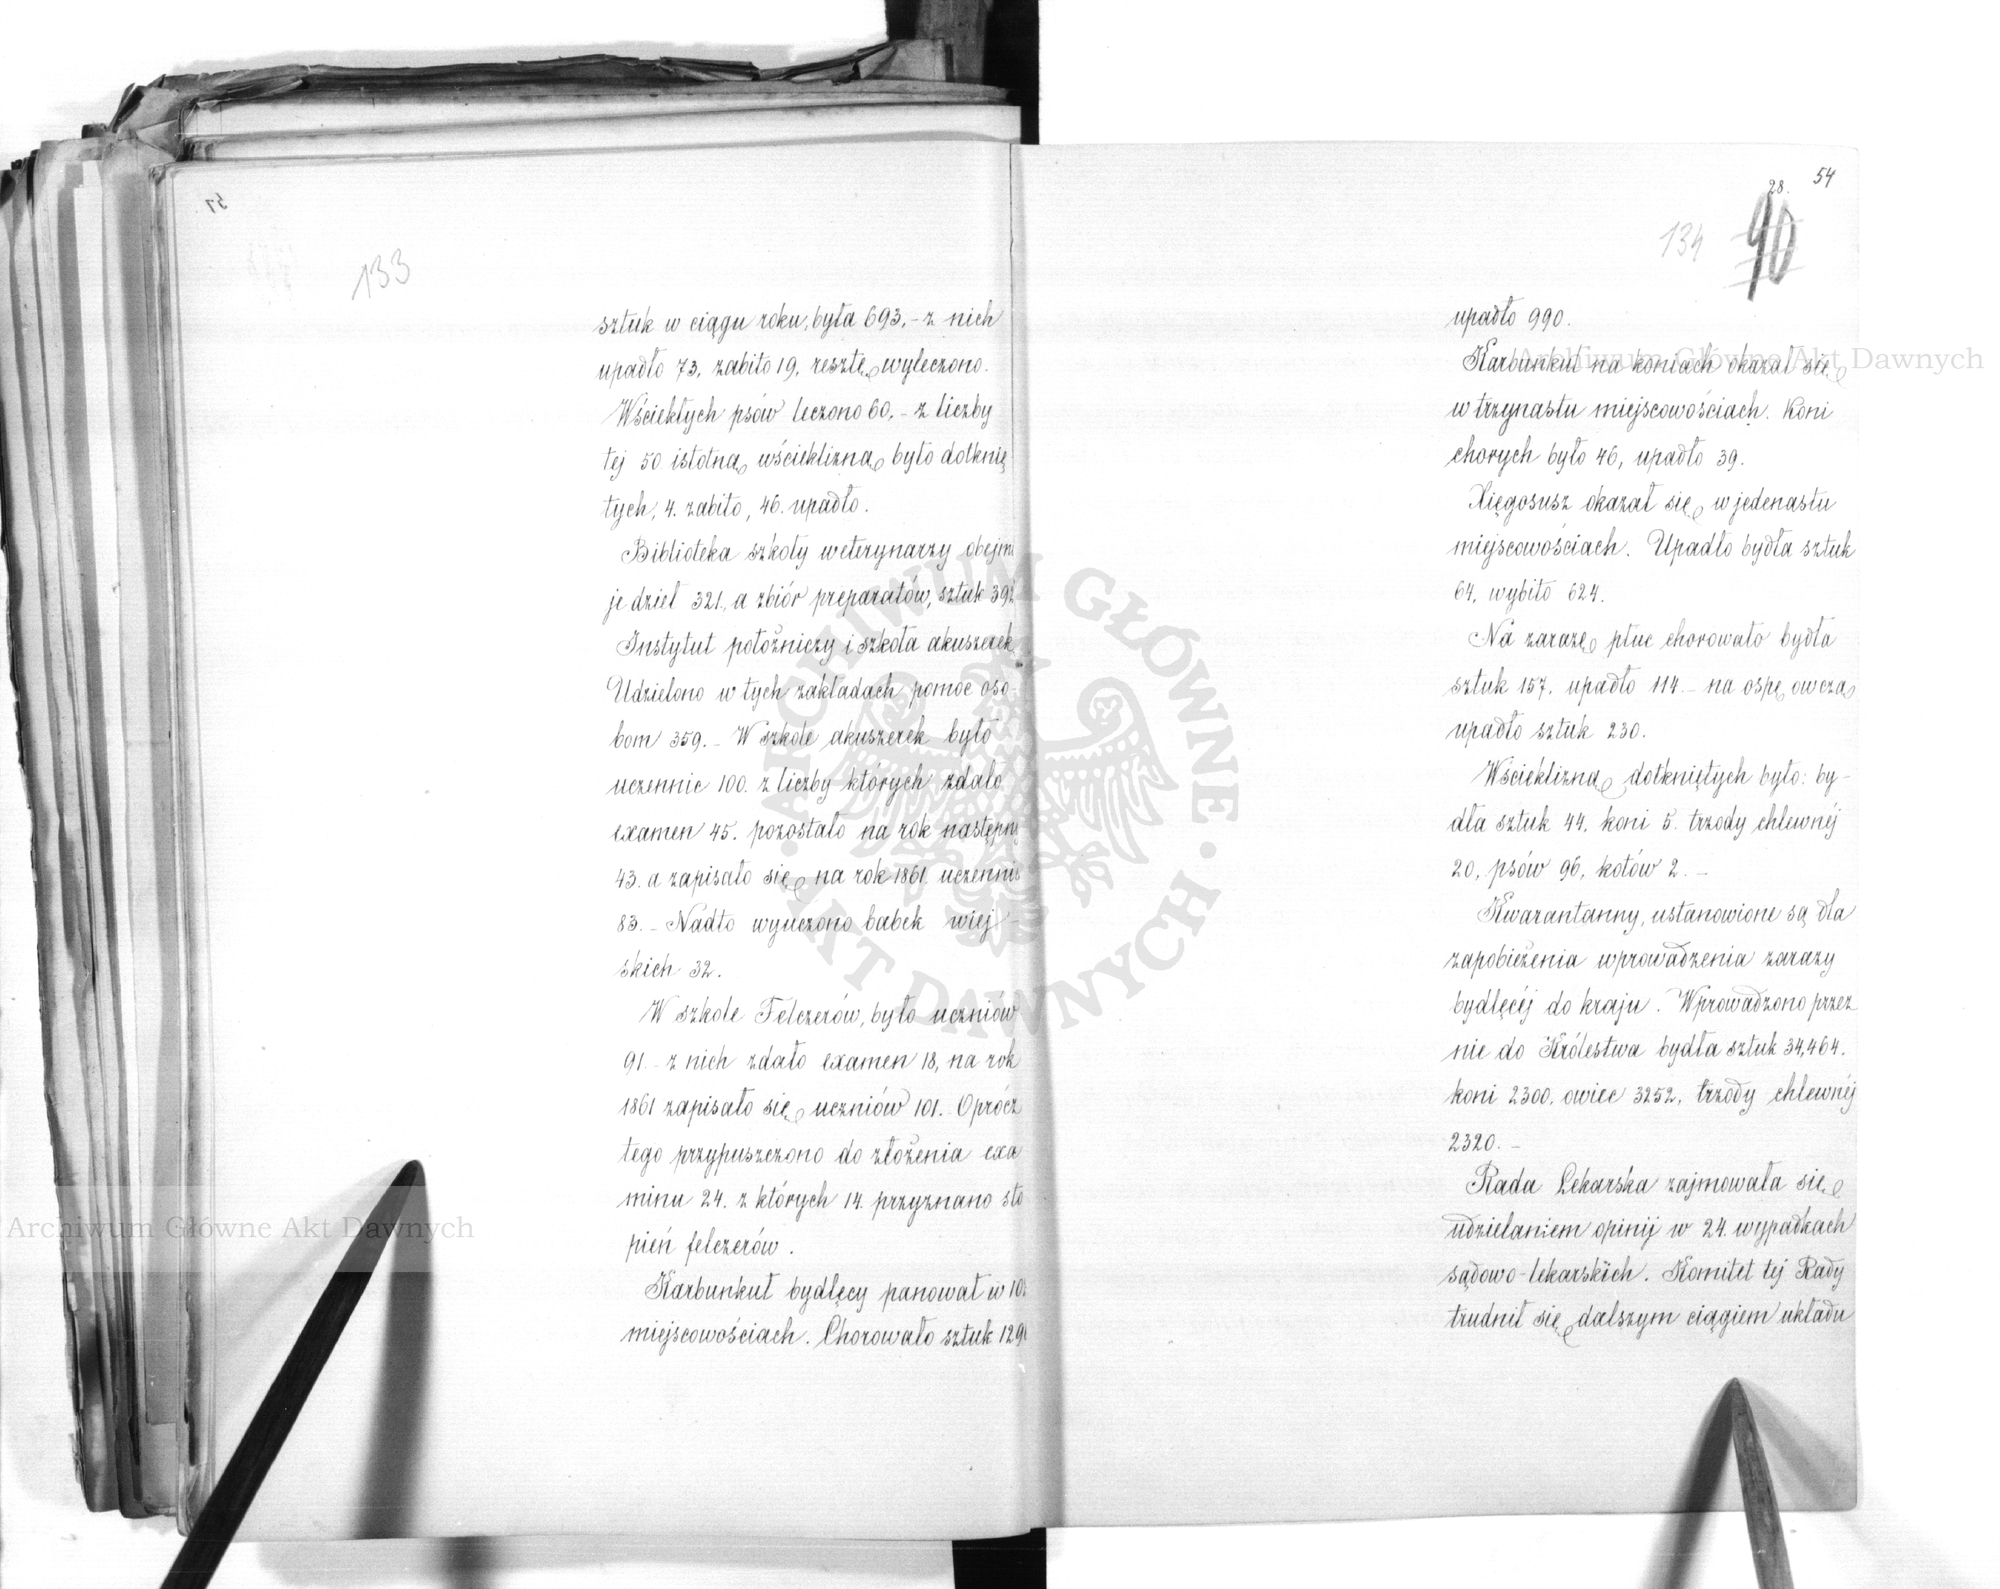 133
sztuk w ciągu roku, była 693,- z nich
upadło 73, zabito 19, resztę wyleczono.
Wściekłych psów leczono 60,- z liczby
tej 50 istotną wścieklizną było dotknię
tych, 4. zabito, 46. upadło.
Biblioteka szkoły weterynarzy obejmu
je dzieł 321., a zbiór preparatów, sztuk 392
Instytut położniczy i szkoła akuszerek
Udzielono w tych zakładach pomoc oso-
bom 359.- W szkole akuszerek było
uczennic 100. z liczby których zdało
examen 45. pozostało na rok następny
43. a zapisało się na rok 1861. uczennic
83.- Nadto wyuczono babek wiej-
skich 32.
W szkole Felczerów, było uczniów
91.- z nich zdało examen 18, na rok
1861 zapisało się uczniów 101.- Oprócz
tego przypuszczono do złożenia exa
minu 24. z których 14. przyznano sto
pień felczerów.
Karbunkuł bydlęcy panował w
miejscowościach. Chorowało sztuk
54
28.
134 90
upadło 990.
Karbunkuł na koniach okazał się
w trzynastu miejscowościach. Koni
chorych było 46, upadło 39.
Xięgosusz okazał się w jedenastu
miejscowościach. Upadło bydła sztuk
64, wybito 624.
Na zarazę płuc chorowało bydła
sztuk 157, upadło 114.- na ospę owczą
upadło sztuk 230.
Wścieklizną dotkniętych było: by-
dła sztuk 44, koni 5. trzody chlewnéj
20, psów 96, kotów 2.-
Kwarantanny, ustanowione są dla
zapobieżenia wprowadzenia zarazy
bydlęcéj do kraju. Wprowadzono przez
nie do Królestwa bydła sztuk 34,464.
koni 2300. owiec 3252, trzody chlewnéj
2320.-
Rada Lekarska zajmowała się
udzielaniem opinij w 24. wypadkach
sądowo-lekarskich. Komitet tej Rady
trudnił się dalszym ciągiem układu
Archiwum Główne Akt Dawnych
Archiwum Główne Akt Dawnych
ARCHIWUM GŁÓWNE · AKT DAWNYCH ·